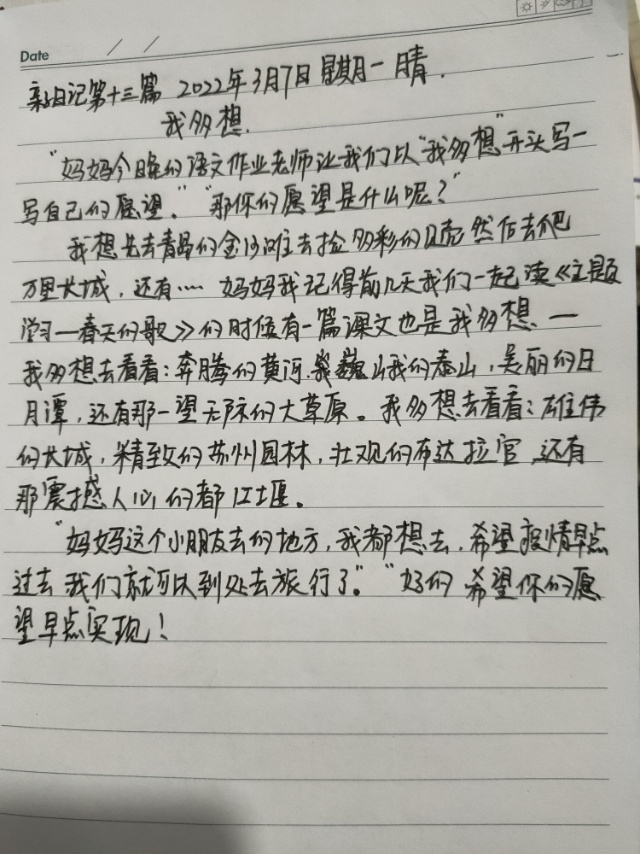 Date / /
亲子日记第十三篇 2022年3月7日 星期一 晴.
我多想.
“妈妈今晚的语文作业老师让我们以“我多想”开头写一
写自己的愿望。”“那你的愿望是什么呢?”
我想先去青岛的金沙滩去捡多彩的贝壳然后去爬
万里长城,还有…… 妈妈我记得前几天我们一起读《主题
学习—春天的歌》的时候有一篇课文也是我多想.—
我多想去看看:奔腾的黄河.巍峨的泰山,美丽的日
月潭,还有那一望无际的大草原。我多想去看看:雄伟
的长城,精致的苏州园林,壮观的布达拉宫 还有
那震撼人心的都江堰。
“妈妈这个小朋友去的地方,我都想去,希望疫情早点
过去 我们就可以到处去旅行了。”“好的 希望你的愿
望早点实现!